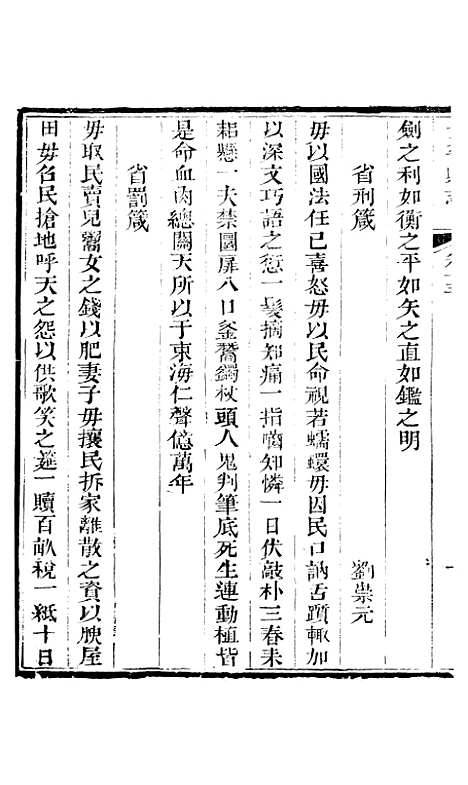 劍之利如衡之平如矢之直如鑑之明
省刑箴 劉崇元
毋以國法任已喜怒毋以民命視若蠕蠉毋因民口訥舌躓輒加
以深文巧語之愆一髮摘知痛一指嚙知憐一日伏敲朴三春耒
耜懸一夫禁圜扉八口釜鬵蠲杖頭人鬼判筆底死生連動植皆
是命血肉總關天所以于東海仁聲億萬年
省罰箴
毋取民賣兒鬻女之錢以肥妻子毋攘民拆家離散之資以腴屋
田毋召民搶地呼天之怨以供歌笑之筵一贖百畝稅一紙十日